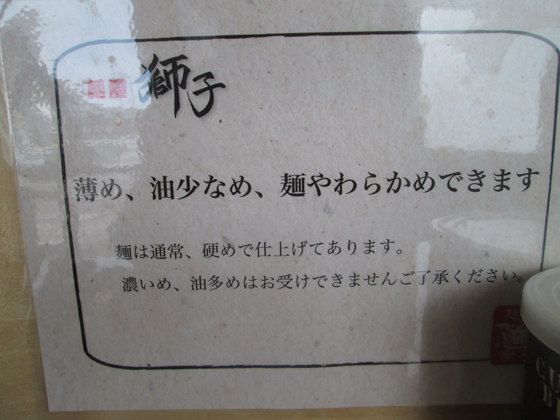 麺屋 獅子
薄め、油少なめ、麺やわらかめできます
麺は通常、硬めで仕上げてあります。
濃いめ、油多めはお受けできませんご了承ください。